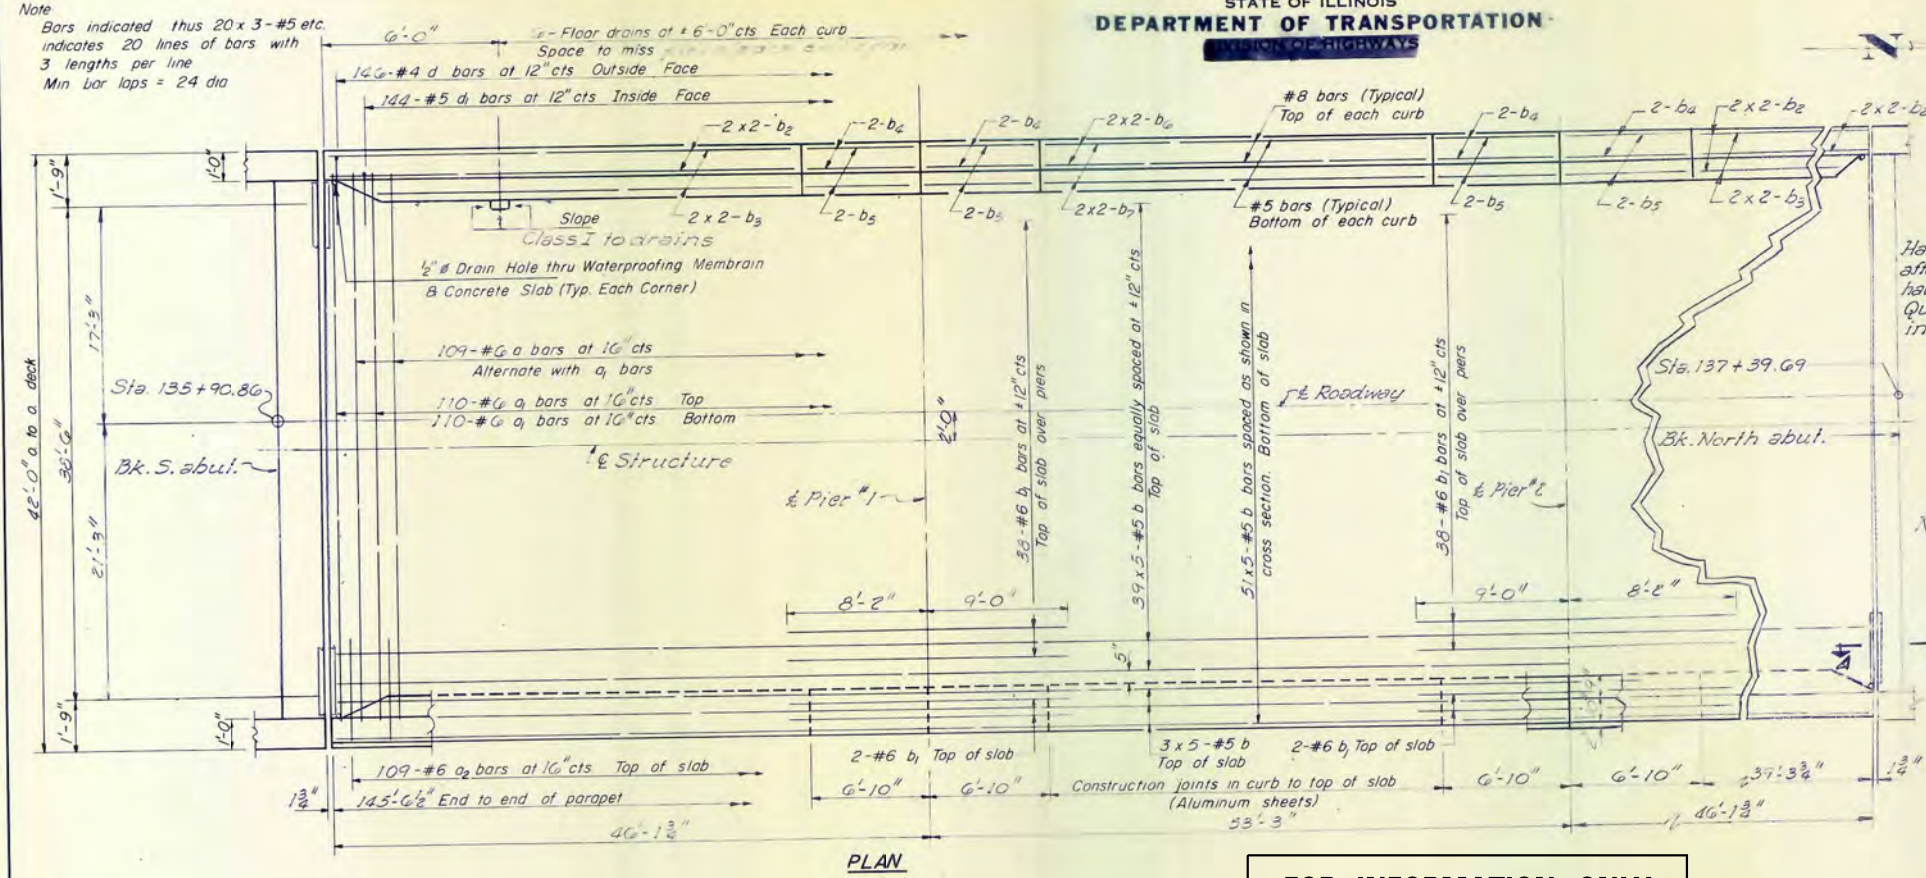 Note
Bars indicated thus 20 x 3 - #5 etc.
indicates 20 lines of bars with
3 lengths per line
Min bar laps = 24 dia
STATE OF ILLINOIS
DEPARTMENT OF TRANSPORTATION
DIVISION OF HIGHWAYS
N
6'-0"
6 - Floor drains at ± 6'-0" cts Each curb
Space to miss
146 - #4 d bars at 12" cts Outside Face
144 - #5 d1 bars at 12" cts Inside Face
#8 bars (Typical)
Top of each curb
2 x 2 - b2
2 - b4
2 - b4
2 x 2 - b6
2 - b4
2 - b4
2 x 2 - b2
2 x 2 - b2
1'-0"
1'-9"
2 x 2 - b3
2 - b5
2 - b5
2 x 2 - b7
#5 bars (Typical)
Bottom of each curb
2 - b5
2 - b5
2 x 2 - b3
Slope
Class I to drains
1/2" ø Drain Hole thru Waterproofing Membrain
& Concrete Slab (Typ. Each Corner)
42'-0" o. to o. deck
38'-6"
17'-3"
21'-3"
109 - #6 a bars at 16" cts
Alternate with a1 bars
110 - #6 a1 bars at 16" cts Top
110 - #6 a1 bars at 16" cts Bottom
Sta. 135+90.86
Bk. S. abut.
℄ Structure
2'-0"
℄ Roadway
℄ Pier #1
℄ Pier #2
Sta. 137+39.69
Bk. North abut.
38 - #6 b1 bars at ±12" cts
Top of slab over piers
39 x 5 - #5 b bars equally spaced at ±12" cts
Top of slab
51 x 5 - #5 b bars spaced as shown in
cross section. Bottom of slab
38 - #6 b1 bars at ±12" cts
Top of slab over piers
8'-2"
9'-0"
9'-0"
8'-2"
5"
1'-9"
1'-0"
2 - #6 b1 Top of slab
3 x 5 - #5 b
Top of slab
2 - #6 b1 Top of slab
109 - #6 a2 bars at 16" cts Top of slab
1 3/4"
145'-6 1/2" End to end of parapet
6'-10"
6'-10"
Construction joints in curb to top of slab
(Aluminum sheets)
6'-10"
6'-10"
39'-3 3/4"
1 3/4"
46'-1 3/4"
53'-3"
46'-1 3/4"
PLAN
FOR INFORMATION ONLY